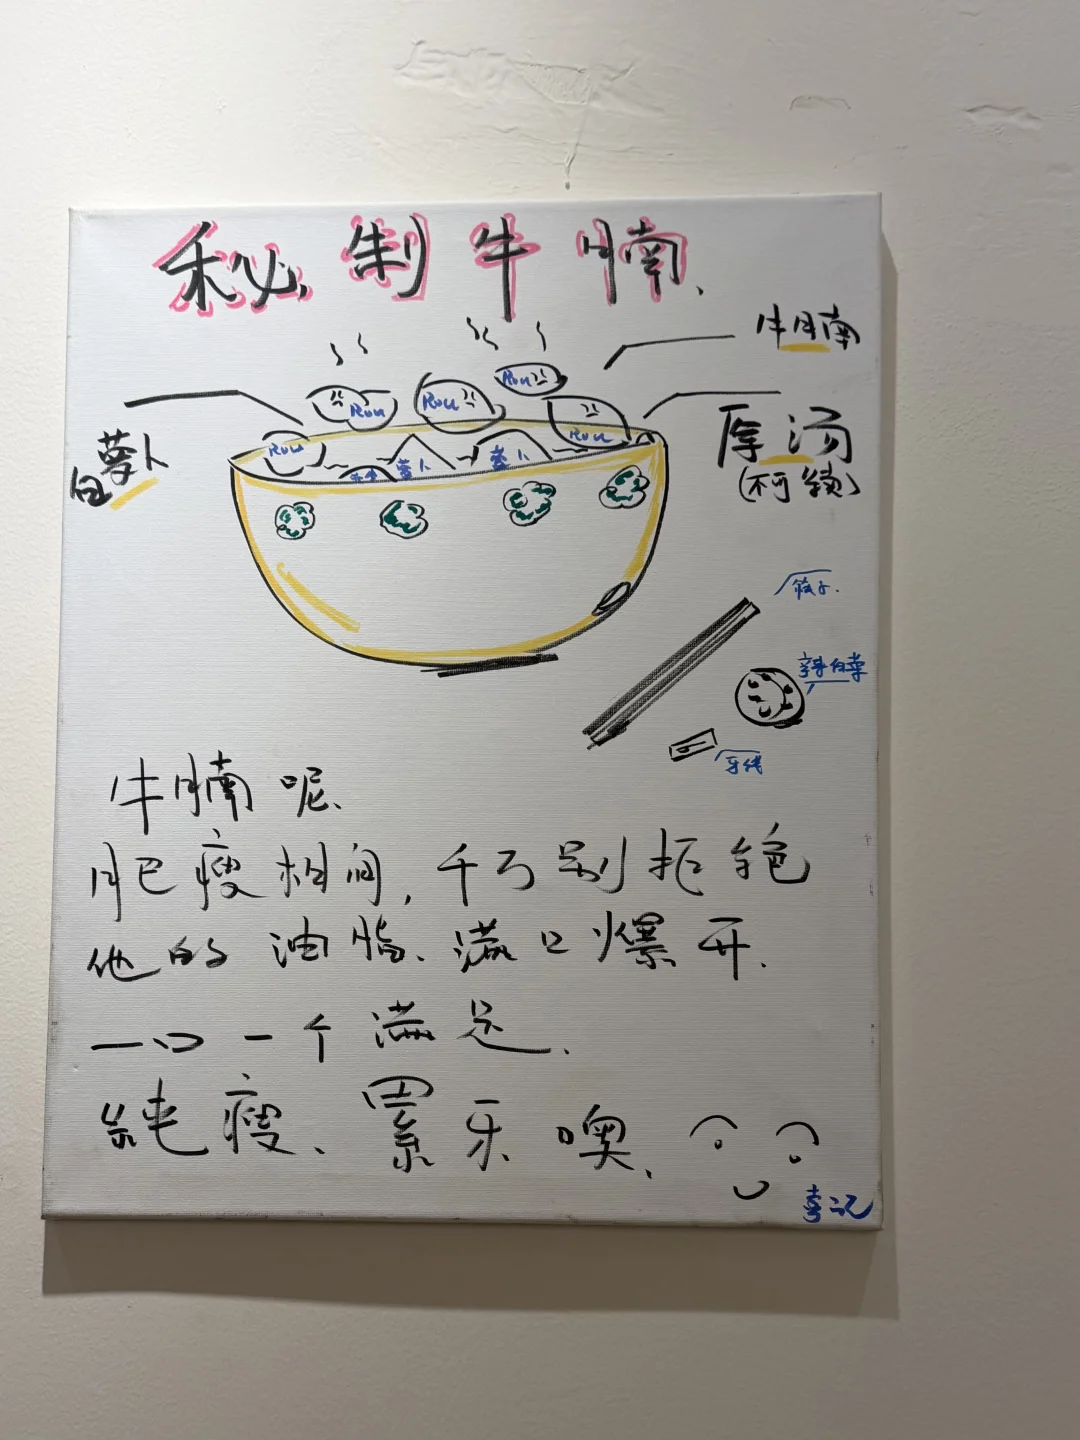 秘制牛腩、
牛腩
白萝卜
厚汤
(可续)
Rou
Rou
Rou
Rou
Rou
萝卜
萝卜
筷子.
辣白菜
牙线
牛腩呢、
肥瘦相间,千万别拒绝
他的油脂、满口爆开.
一口一个满足.
纯瘦、累牙噢、
李记